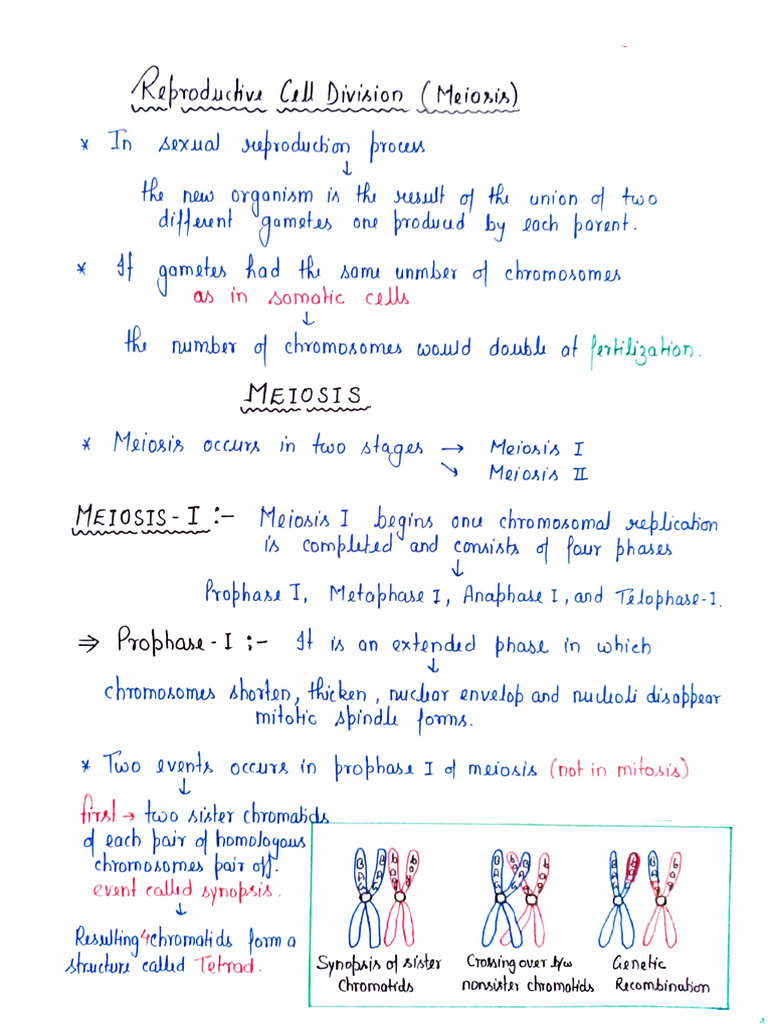 Reproductive Cell Division (Meiosis)
* In sexual reproduction process
↓
the new organism is the result of the union of two
different gametes one produced by each parent.
* If gametes had the same unmber of chromosomes
as in somatic cells
↓
the number of chromosomes would double at fertilization.
MEIOSIS
* Meiosis occurs in two stages → Meiosis I
↘ Meiosis II
MEIOSIS-I :- Meiosis I begins once chromosomal replication
is completed and consists of four phases
↓
Prophase I, Metaphase I, Anaphase I, and Telophase-I.
⇒ Prophase-I :- It is an extended phase in which
↓
chromosomes shorten, thicken, nuclear envelop and nucleoli disappear
mitotic spindle forms.
* Two events occurs in prophase I of meiosis (not in mitosis)
↓
first → two sister chromatids
of each pair of homologous
chromosomes pair off.
event called synopsis.
↓
Resulting 4 chromatids form a
structure called Tetrad.
Synopsis of sister
Chromatids
Crossing over b/w
nonsister chromatids
Genetic
Recombination